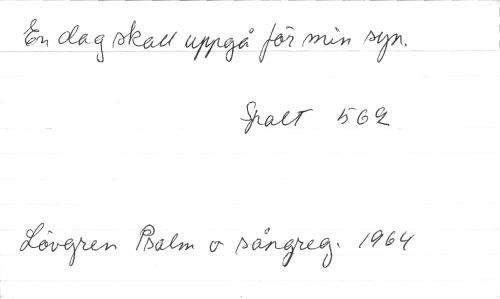 En dag skall uppgå för min syn.
Spalt 562
Lövgren Psalm o sångreg. 1964